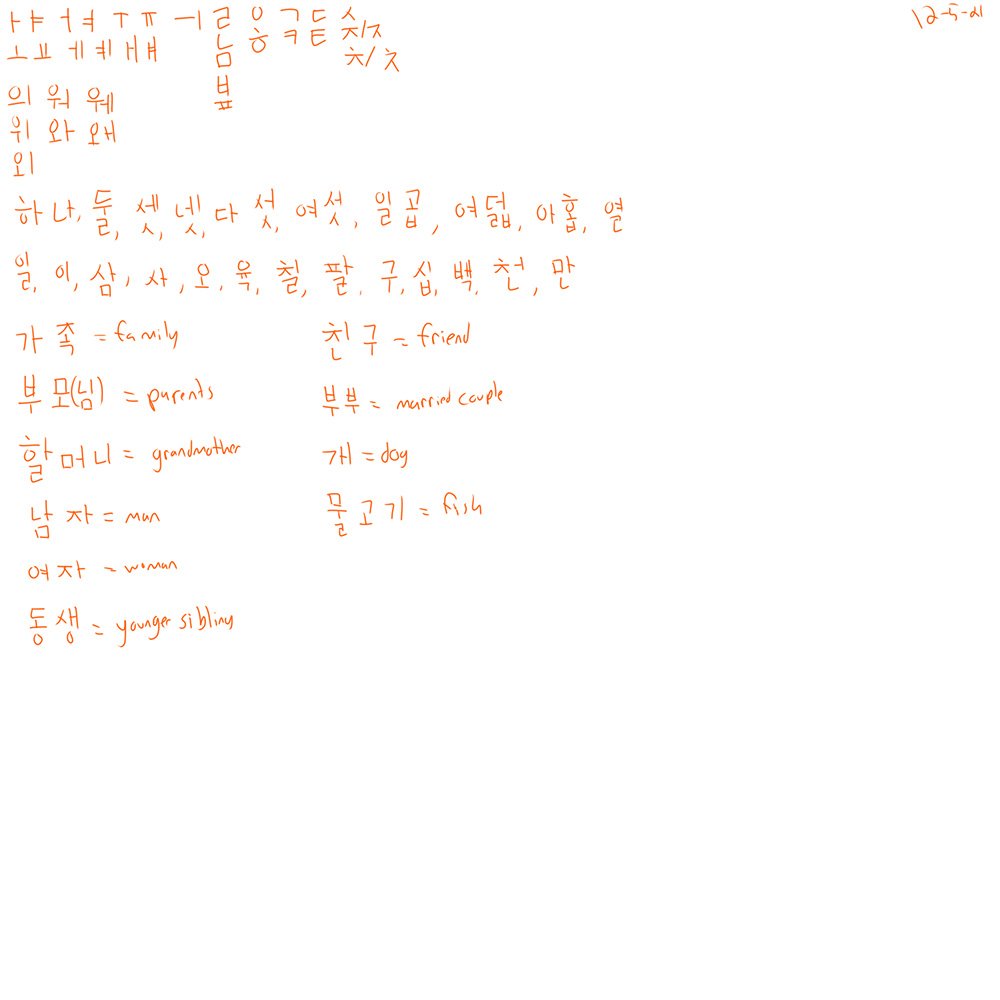 ㅏㅑ ㅓㅕ ㅜㅠ ㅡㅣ ㄹ ㅇ ㄱ ㄷ ㅅ 12-5-21
ㅗㅛ ㅔㅖ ㅐㅒ ㄴ ㅎ ㅋ ㅌ ㅈ/ㅈ
ㅁ ㅊ/ㅊ
의 워 웨 ㅂ
위 와 왜 ㅍ
외
하나, 둘, 셋, 넷, 다섯, 여섯, 일곱, 여덟, 아홉, 열
일, 이, 삼, 사, 오, 육, 칠, 팔, 구, 십, 백, 천, 만
가족 = family 친구 = friend
부모(님) = parents 부부 = married couple
할머니 = grandmother 개 = dog
남자 = man 물고기 = fish
여자 = woman
동생 = younger sibling